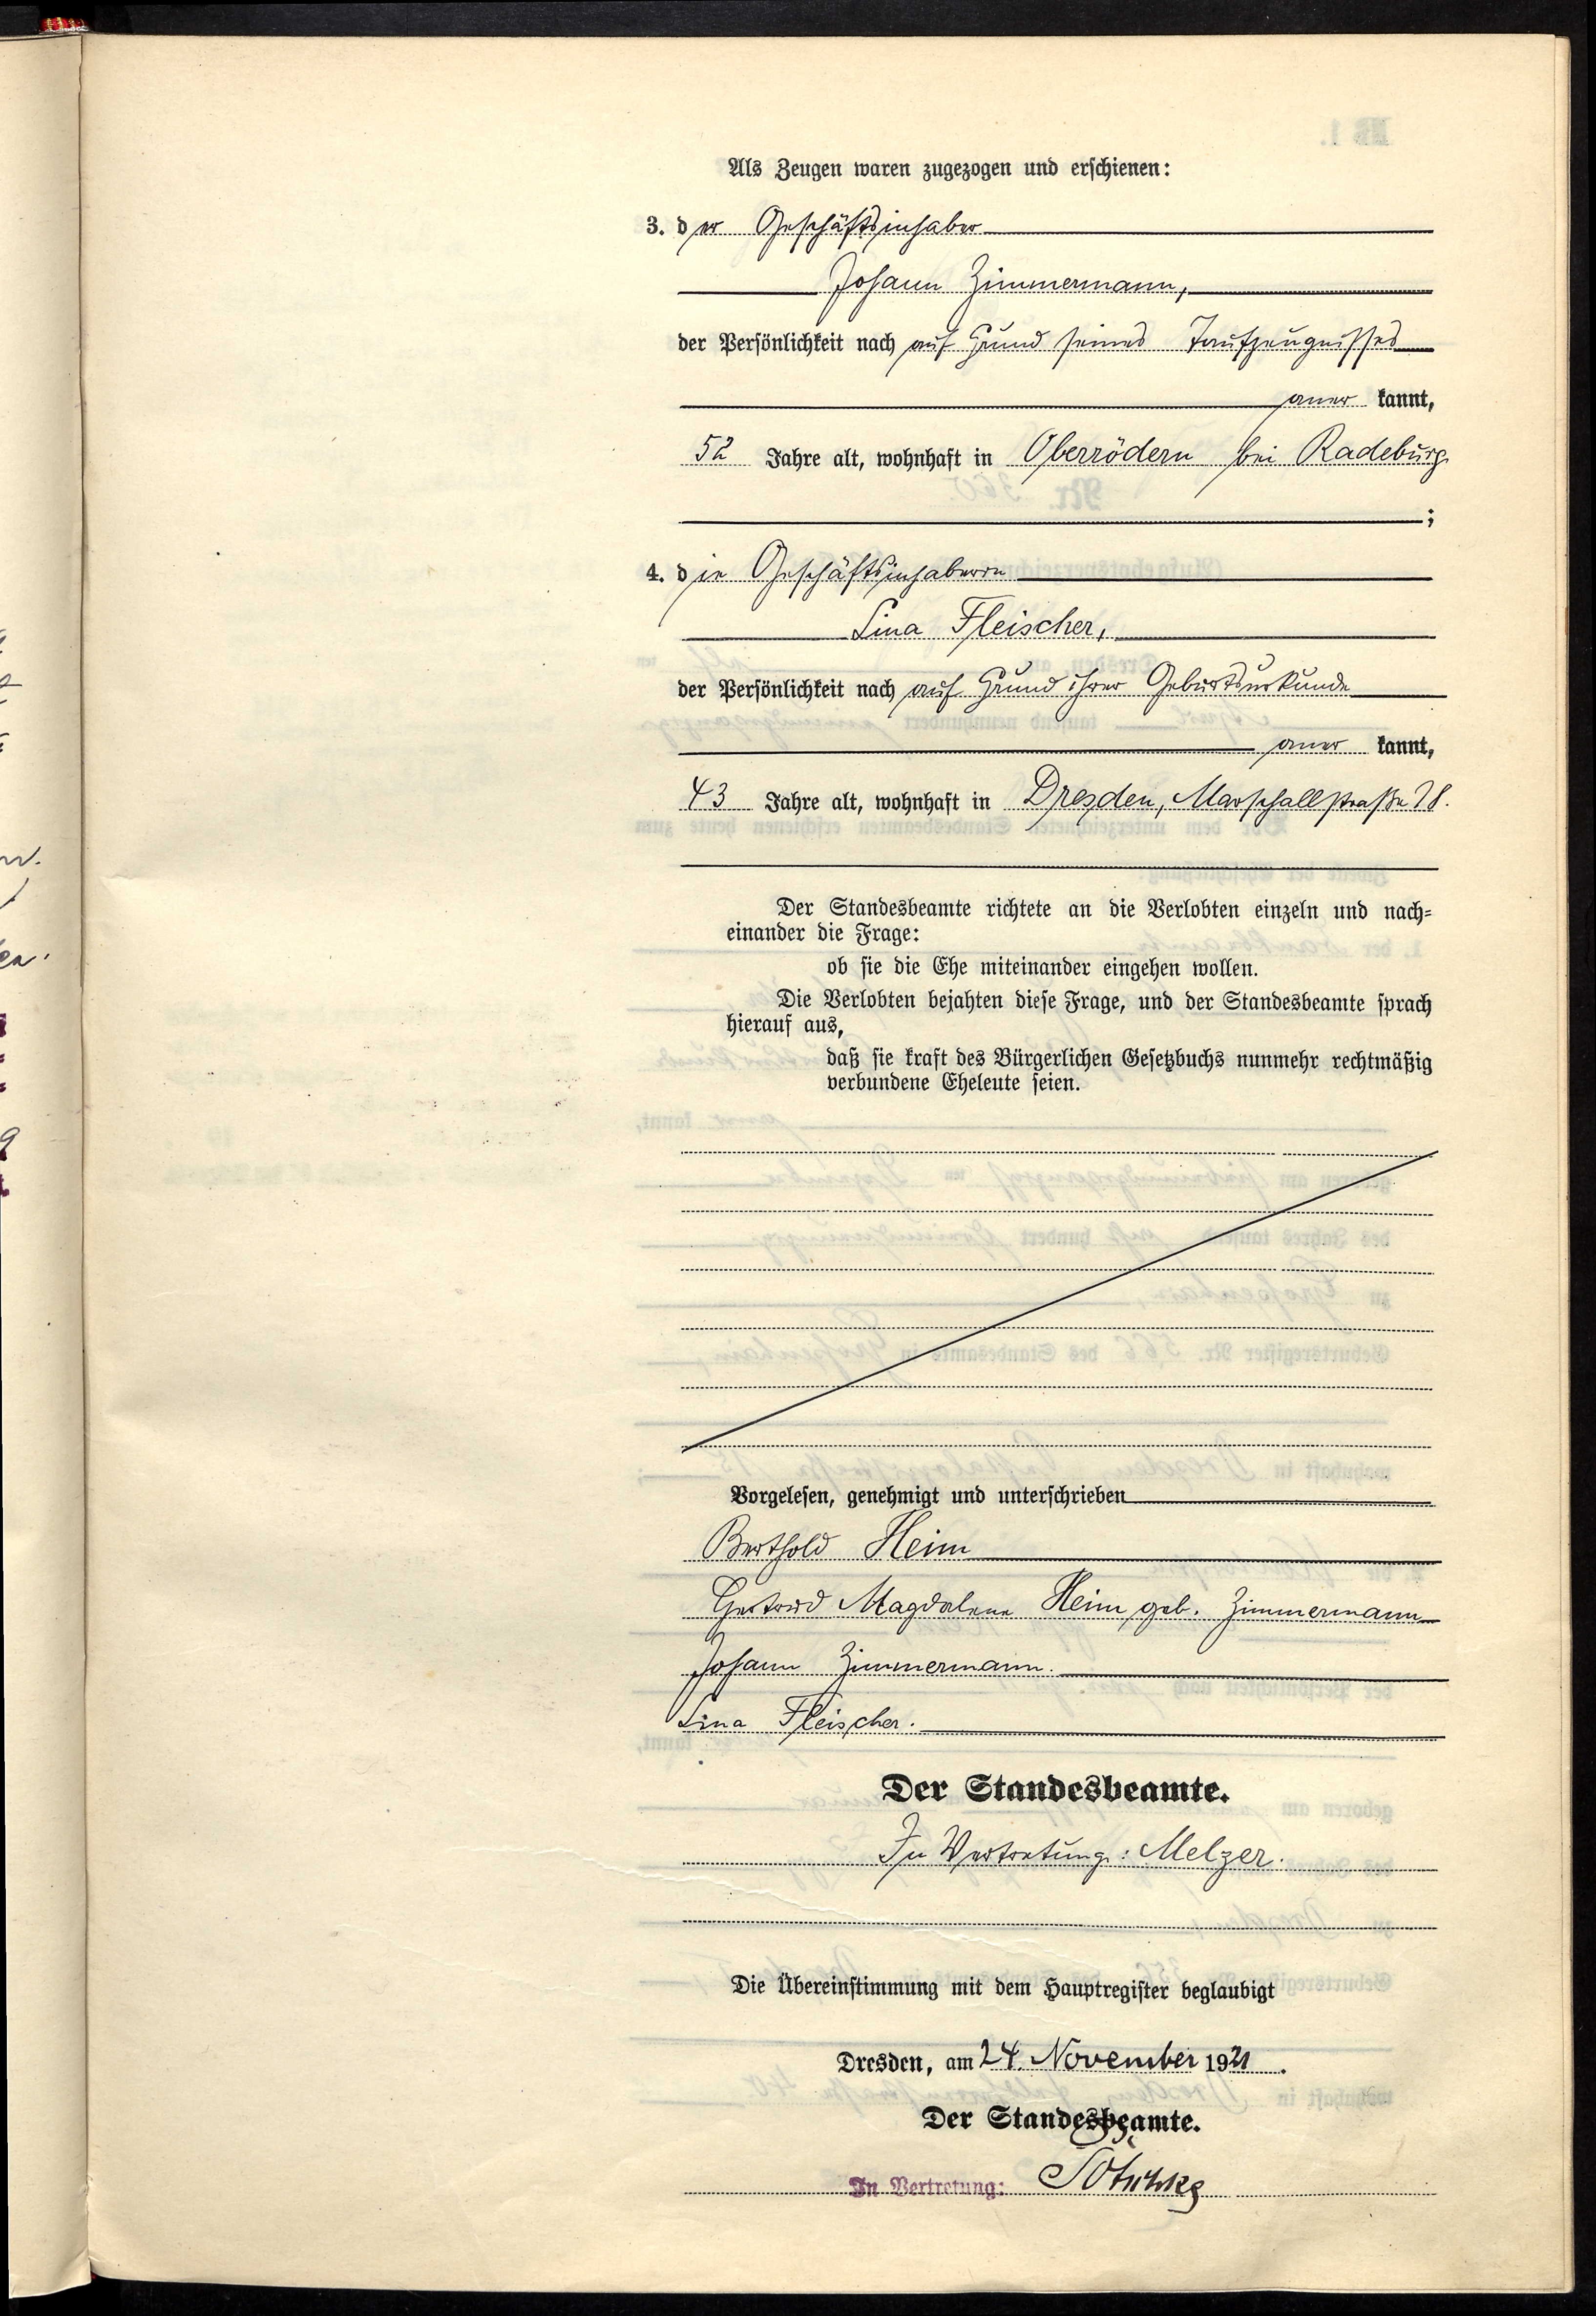 Als Zeugen waren zugezogen und erschienen:
3. der Geschäftsinhaber
Johann Zimmermann,
der Persönlichkeit nach auf Grund seines Taufzeugnisses
aner kannt,
52 Jahre alt, wohnhaft in Oberrödern bei Radeburg
;
4. die Geschäftsinhaberin
Lina Fleischer,
der Persönlichkeit nach auf Grund ihrer Geburtsurkunde
aner kannt,
43 Jahre alt, wohnhaft in Dresden, Marschallstraße
Der Standesbeamte richtete an die Verlobten einzeln und nach-
einander die Frage:
ob sie die Ehe miteinander eingehen wollen.
Die Verlobten bejahten diese Frage, und der Standesbeamte sprach
hierauf aus,
daß sie kraft des Bürgerlichen Gesetzbuchs nunmehr rechtmäßig
verbundene Eheleute seien.
Vorgelesen, genehmigt und unterschrieben
Berthold Heim
Gertrud Magdalena Heim geb. Zimmermann
Johann Zimmermann.
Lina Fleischer.
Der Standesbeamte.
In Vertretung: Melzer.
Die Übereinstimmung mit dem Hauptregister beglaubigt
Dresden, am 24. November 1921.
Der Standesbeamte.
In Vertretung: